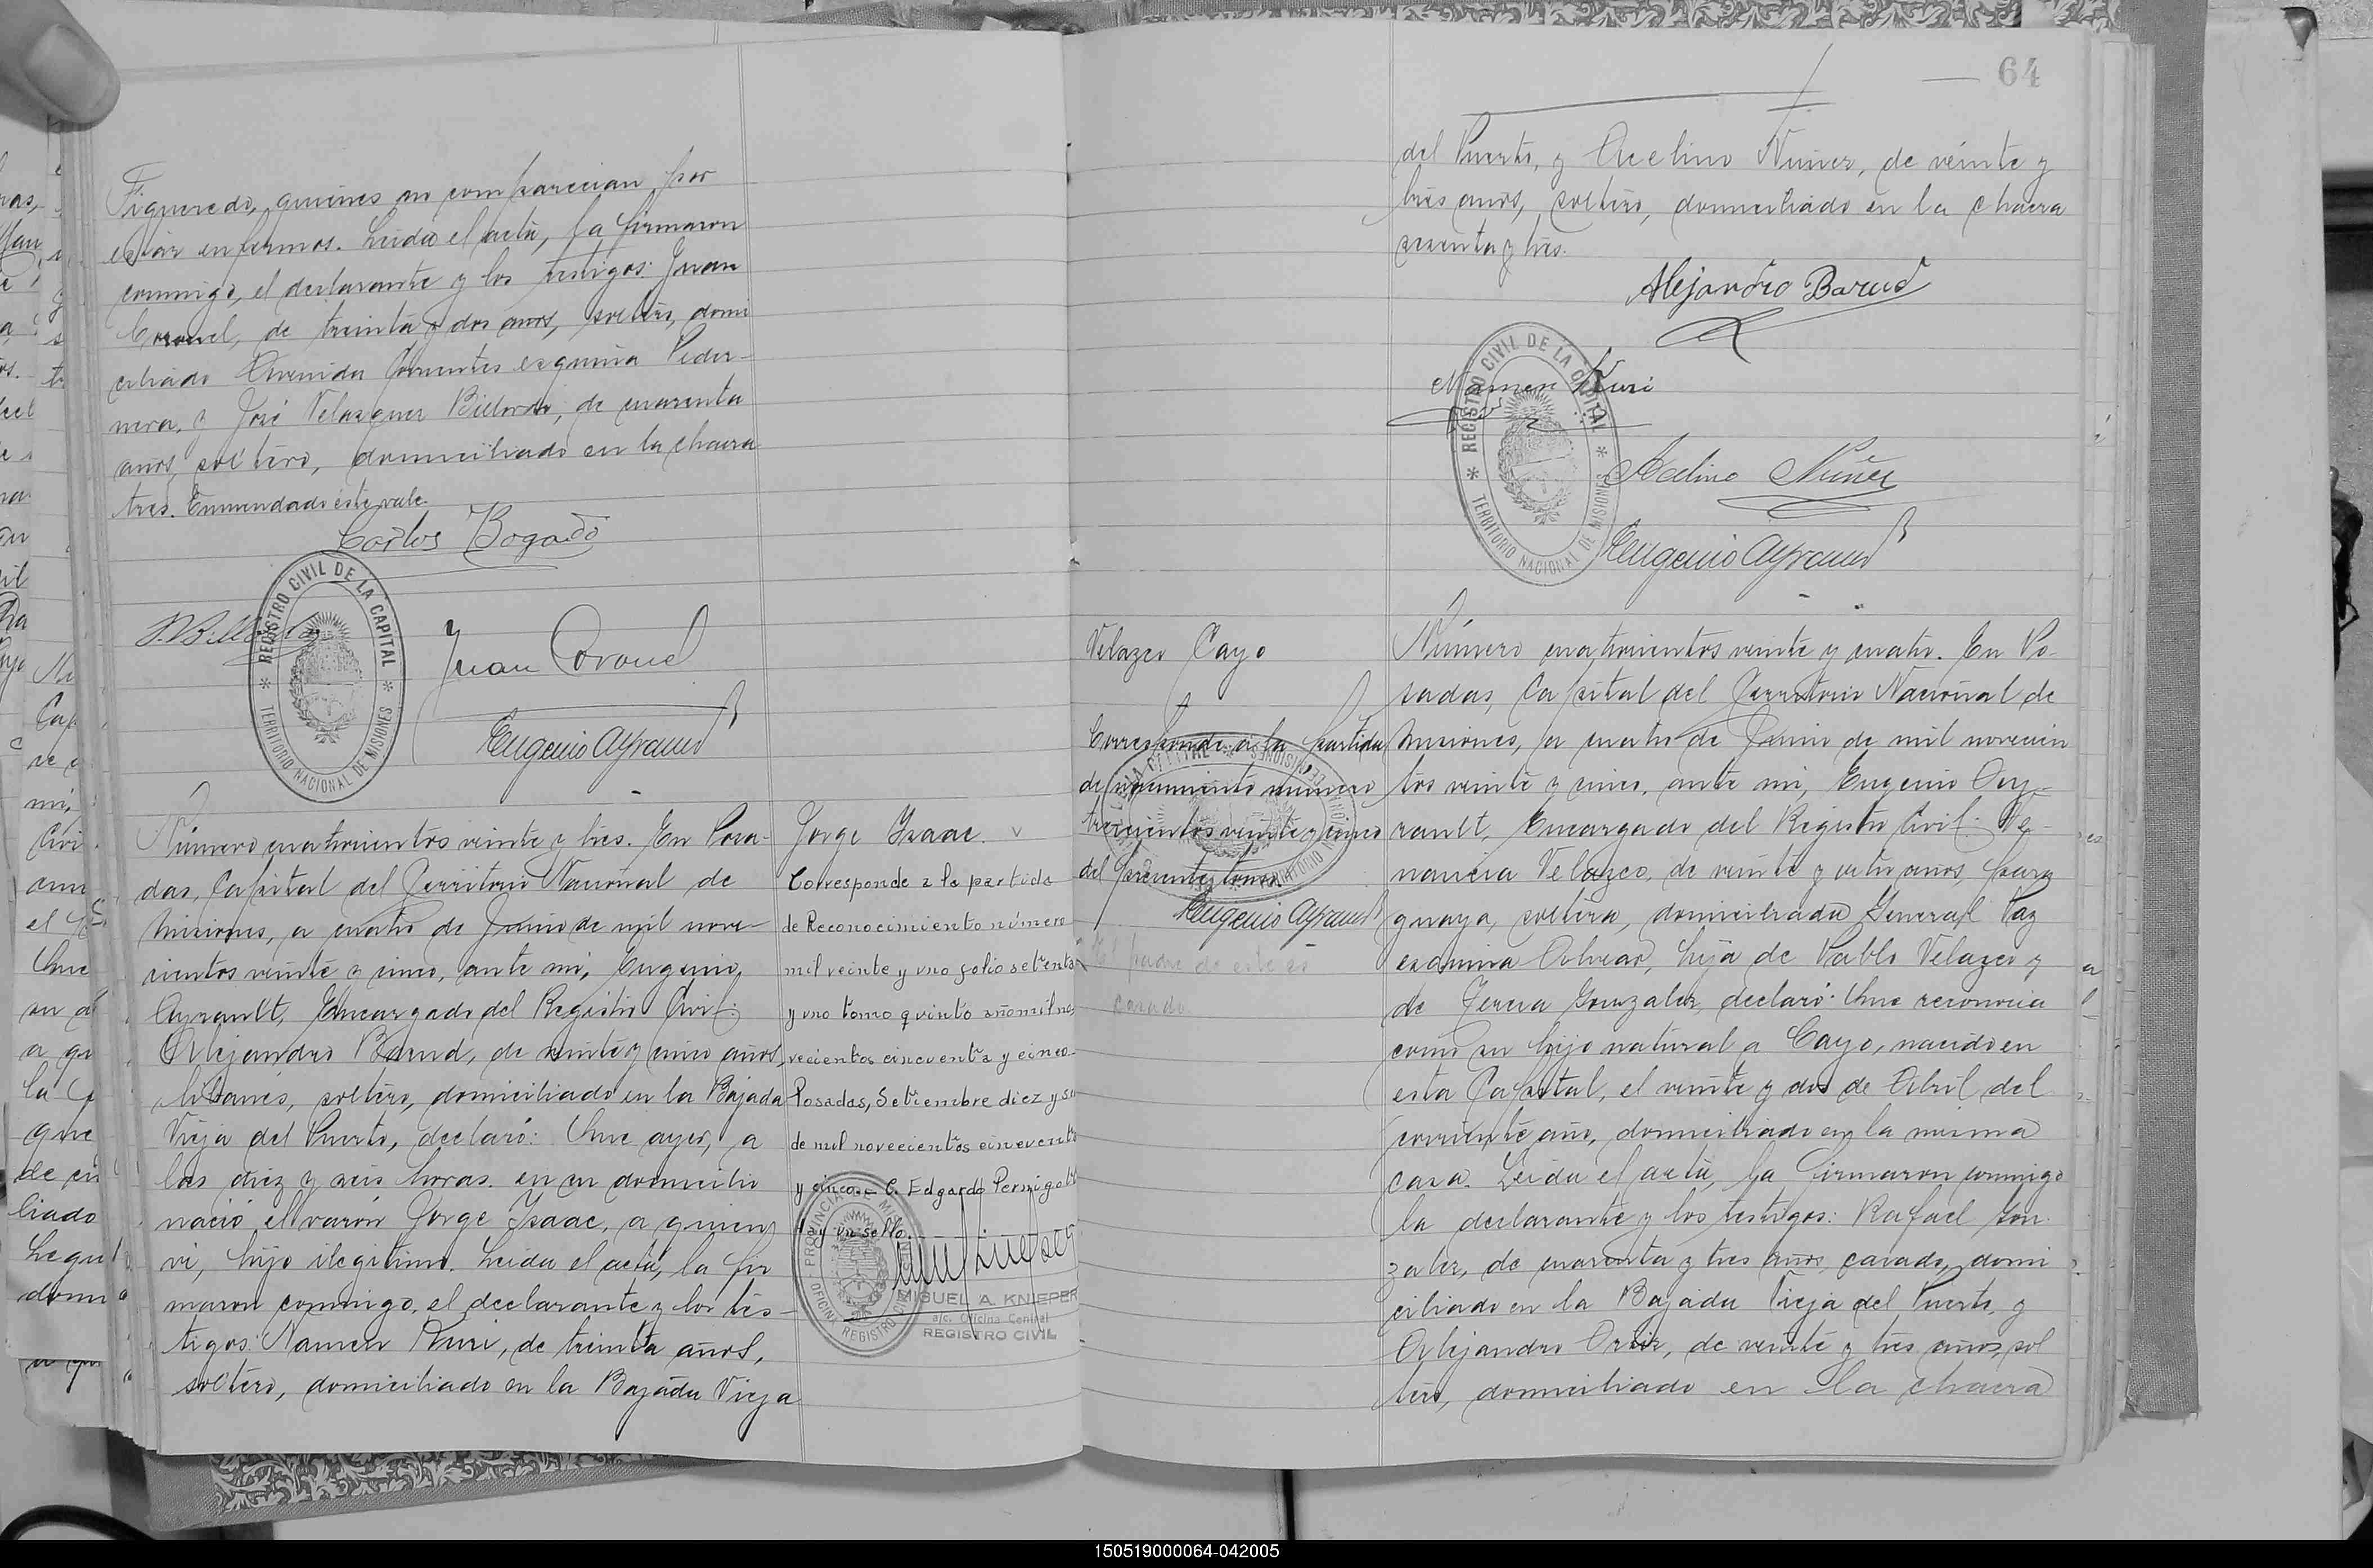 Figueredo, quienes no comparecian por
estar enfermos. Leida el acta, la firmaron
conmigo, el declarante y los testigos: Juan
Coronel, de treinta y dos años, soltero, domi
ciliado Avenida Corrientes esquina Peder-
nera, y José Velazquez Billordo, de cuarenta
años, soltero, domiciliado en la chacra
tres. Enmendado este vale.
Carlos Bogado
REGISTRO CIVIL DE LA CAPITAL
TERRITORIO NACIONAL DE MISIONES
Juan Coronel
Eugenio Ayrault
Número cuatrocientos veinte y tres. En Posa-
das, Capital del Territorio Nacional de
Misiones, a cuatro de Junio de mil nove-
cientos veinte y cinco, ante mi, Eugenio
Ayrault, Encargado del Registro Civil:
Alejandro Barud, de veinte y cinco años,
libanés, soltero, domiciliado en la Bajada
Vieja del Puerto, declaró: Que ayer, a
las diez y seis horas en su domicilio
nació el varón Jorge Isaac, a quien
vi, hijo ilegitimo. Leida el acta, la fir
maron conmigo, el declarante y los tes-
tigos: Namen Kuri, de treinta años,
soltero, domiciliado en la Bajada Vieja
Jorge Isaac.
Corresponde a la partida
de Reconocimiento número
mil veinte y uno folio setenta
y uno tomo quinto año mil no
vecientos cincuenta y cinco-
Posadas, Setiembre diez y
de mil novecientos cincuenta
y cinco.- C. Edgardo Pernigotti
Hay un sello.
PROVINCIA DE MISIONES
OFICINA REGISTRO CIVIL
MIGUEL A. KNIEPER
a/c. Oficina Central
REGISTRO CIVIL
64
del Puerto, y Avelino Nuñez, de veinte y
tres años, soltero, domiciliado en la chacra
sesenta y tres.
Alejandro Barud
Namen Kuri
REGISTRO CIVIL DE LA CAPITAL
TERRITORIO NACIONAL DE MISIONES
Avelino Núñez
Eugenio Ayrault
Velazco Cayo
Corresponde a la partida
de nacimiento número
trescientos veinte y cinco
del presente tomo.
Eugenio Ayrault
El padre de este es
casado
Número cuatrocientos veinte y cuatro. En Po-
sadas, Capital del Territorio Nacional de
Misiones, a cuatro de Junio de mil novecien
tos veinte y cinco, ante mi, Eugenio Ay-
rault, Encargado del Registro Civil: Ve-
nancia Velazco, de veinte y ocho años, para
guaya, soltera, domiciliada General Paz
esquina Alvear, hija de Pablo Velazco y
de Teresa Gonzalez, declaró: Que reconocia
como su hijo natural a Cayo, nacido en
esta Capital, el veinte y dos de Abril del
corriente año, domiciliado en la misma
casa. Leida el acta, la firmaron conmigo
la declarante y los testigos: Rafael Gon-
zalez, de cuarenta y tres años, casado, domi
ciliado en la Bajada Vieja del Puerto, y
Alejandro Ortiz, de veinte y tres años, sol
tero, domiciliado en la chacra
150519000064-042005